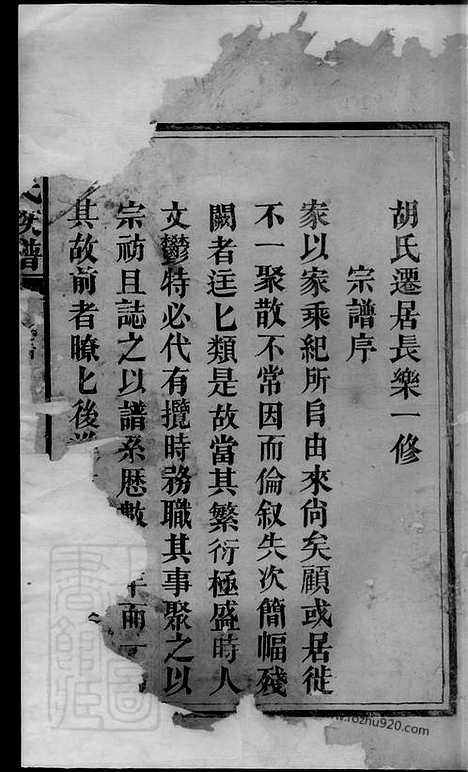 胡氏遷居長樂一修
宗譜序
家以家乘紀所自由來尚矣顧或居徙
不一聚散不常因而倫叙失次簡幅殘
闕者迋匕類是故當其繁衍極盛時人
文鬱特必代有攬時務職其事聚之以
宗祊且誌之以譜系歷數年而
其故前者瞭匕後
氏族譜
www.rozhu920.com